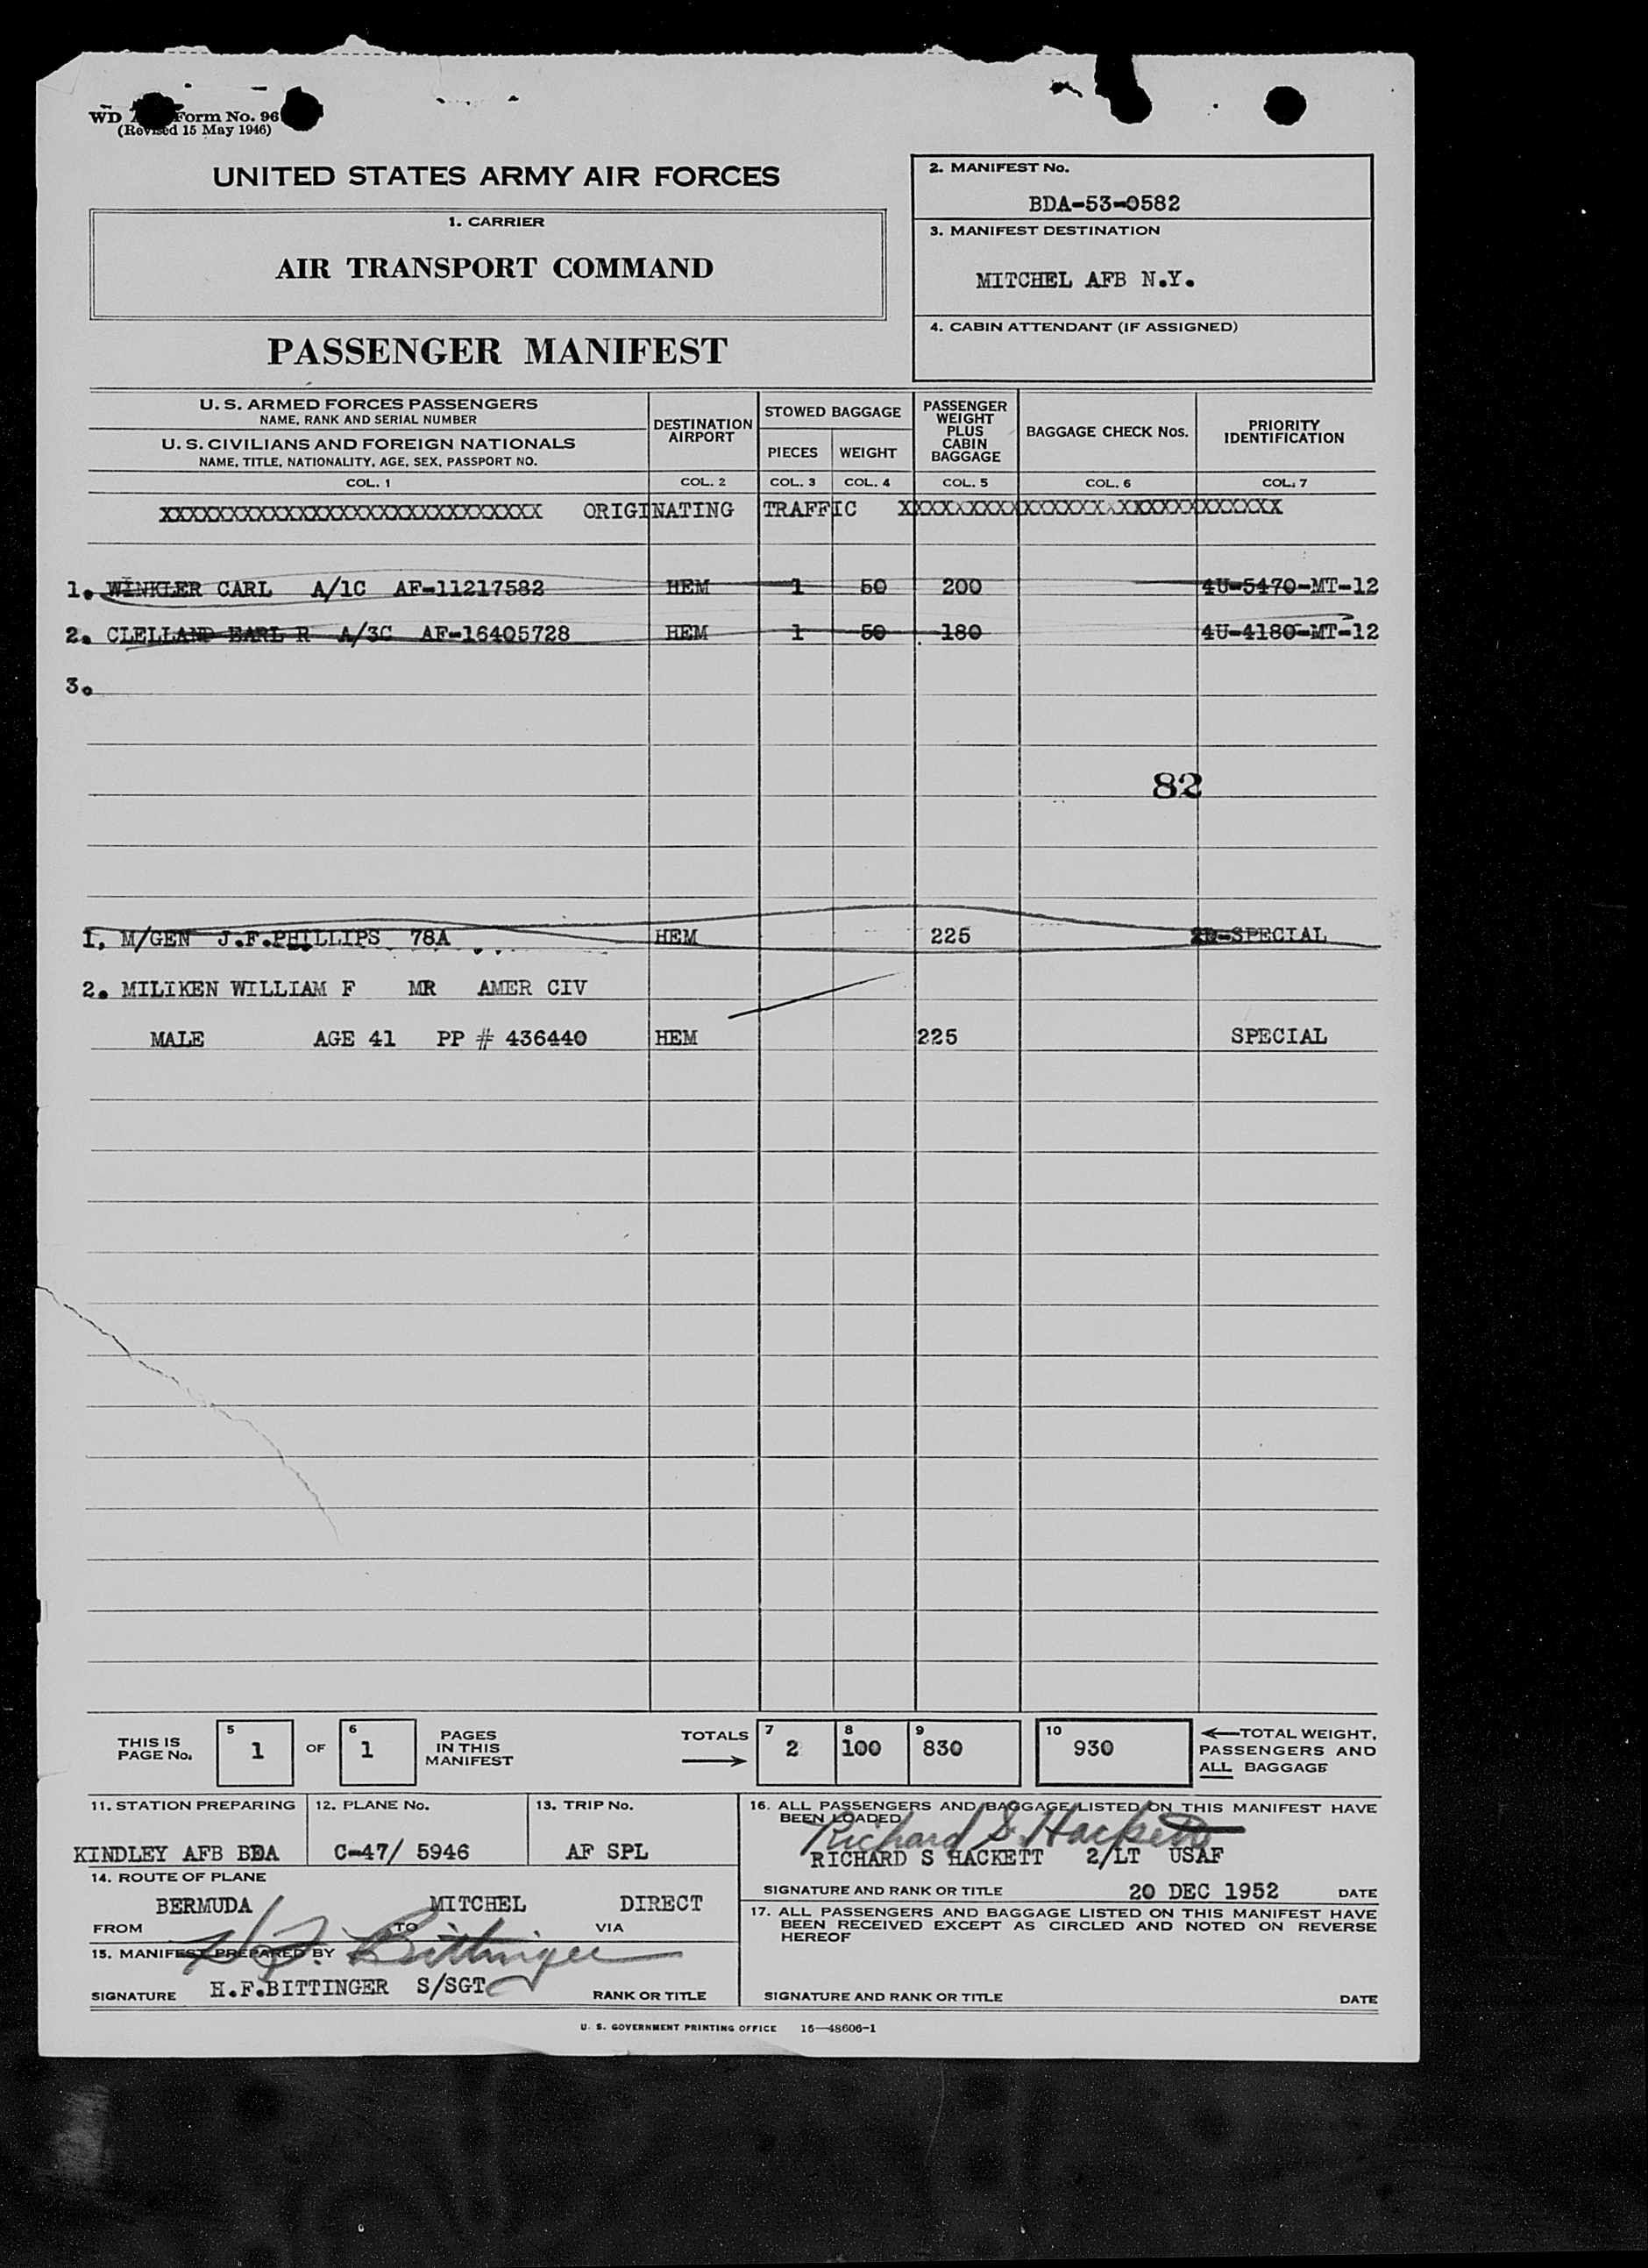 WD Form No. 96
(Revised 15 May 1946)
UNITED STATES ARMY AIR FORCES
1. CARRIER
AIR TRANSPORT COMMAND
PASSENGER MANIFEST
2. MANIFEST No.
BDA-53-0582
3. MANIFEST DESTINATION
MITCHEL AFB N.Y.
4. CABIN ATTENDANT (IF ASSIGNED)
U. S. ARMED FORCES PASSENGERS
NAME, RANK AND SERIAL NUMBER
U. S. CIVILIANS AND FOREIGN NATIONALS
NAME, TITLE, NATIONALITY, AGE, SEX, PASSPORT NO.
DESTINATION AIRPORT
STOWED BAGGAGE
PIECES WEIGHT
PASSENGER WEIGHT PLUS CABIN BAGGAGE
BAGGAGE CHECK Nos.
PRIORITY IDENTIFICATION
COL. 1 COL. 2 COL. 3 COL. 4 COL. 5 COL. 6 COL. 7
XXXXXXXXXXXXXXXXXXXXXXXXXX ORIGINATING TRAFFIC XXXXXXXXXXXXXXXXXXXXXXXXXX
1. WINKLER CARL A/1C AF-11217582 HEM 1 50 200 4U-5470-MT-12
2. CLELLAND EARL R A/3C AF-16405728 HEM 1 50 180 4U-4180-MT-12
3.
82
1. M/GEN J.F.PHILLIPS 78A HEM 225 SPECIAL
2. MILIKEN WILLIAM F MR AMER CIV
MALE AGE 41 PP # 436440 HEM 225 SPECIAL
THIS IS PAGE No. 5 1 OF 6 1 PAGES IN THIS MANIFEST
TOTALS 7 2 8 100 9 830 10 930 TOTAL WEIGHT, PASSENGERS AND ALL BAGGAGE
11. STATION PREPARING 12. PLANE No. 13. TRIP No.
KINDLEY AFB BDA C-47/ 5946 AF SPL
14. ROUTE OF PLANE
BERMUDA MITCHEL DIRECT
FROM TO VIA
15. MANIFEST PREPARED BY
H.F. Bittinger
SIGNATURE H.F.BITTINGER S/SGT RANK OR TITLE
16. ALL PASSENGERS AND BAGGAGE LISTED ON THIS MANIFEST HAVE
BEEN LOADED
Richard S. Hackett
RICHARD S HACKETT 2/LT USAF
SIGNATURE AND RANK OR TITLE 20 DEC 1952 DATE
17. ALL PASSENGERS AND BAGGAGE LISTED ON THIS MANIFEST HAVE
BEEN RECEIVED EXCEPT AS CIRCLED AND NOTED ON REVERSE
HEREOF
SIGNATURE AND RANK OR TITLE DATE
U. S. GOVERNMENT PRINTING OFFICE 16—48606-1